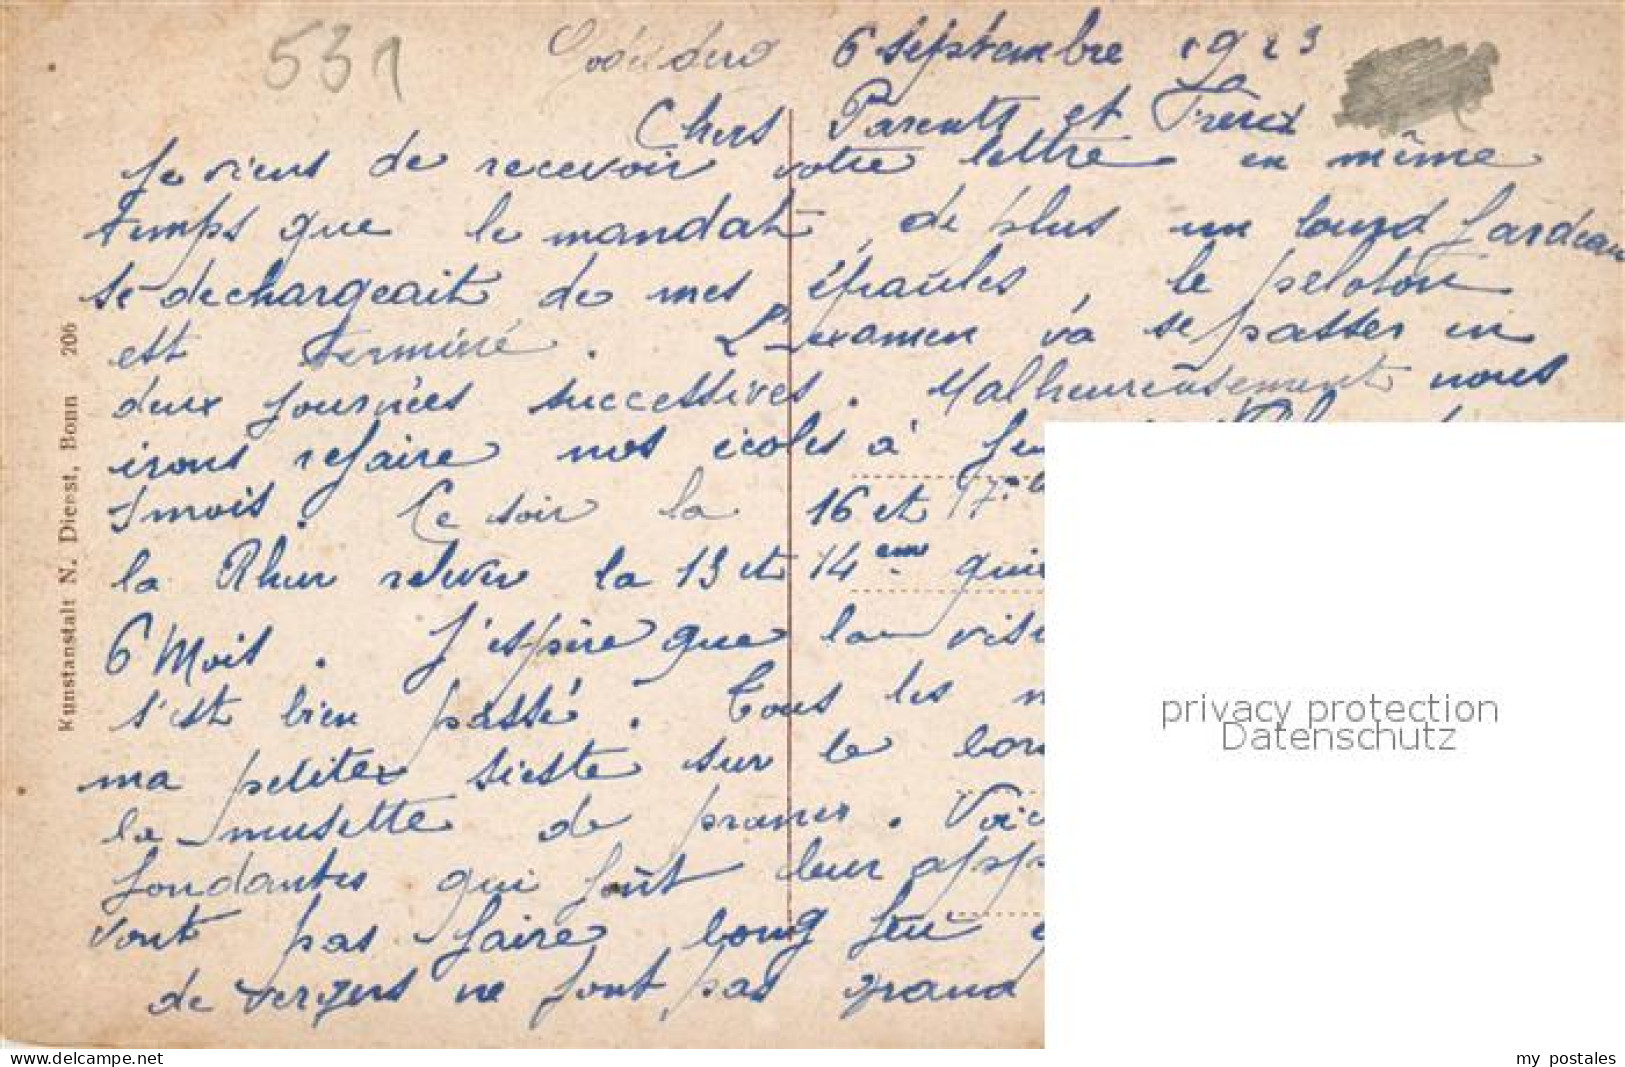 531
6 septembre 1923
Chers Parents et Freres
Je viens de recevoir votre lettre en même
temps que le mandat, de plus un lourd fardeau
se dechargeait de mes épaules, le peloton
est terminé. L'examen va se passer en
deux journées successives. Malheureusement nous
irons refaire nos écoles à feu
mois. Ce soir la 16 et 17
la Rhur relever la 13 et 14eme qui
6 Mois. J'espère que la visi
s'est bien passé. Tous les m
ma petite sieste sur le bor
la musette de prunes. Voic
fondantes qui font leur app
vont pas faire long feu
de vergers ne font pas grand
Kunstanstalt N. Dienst, Bonn 206
privacy protection
Datenschutz
my postales
www.delcampe.net